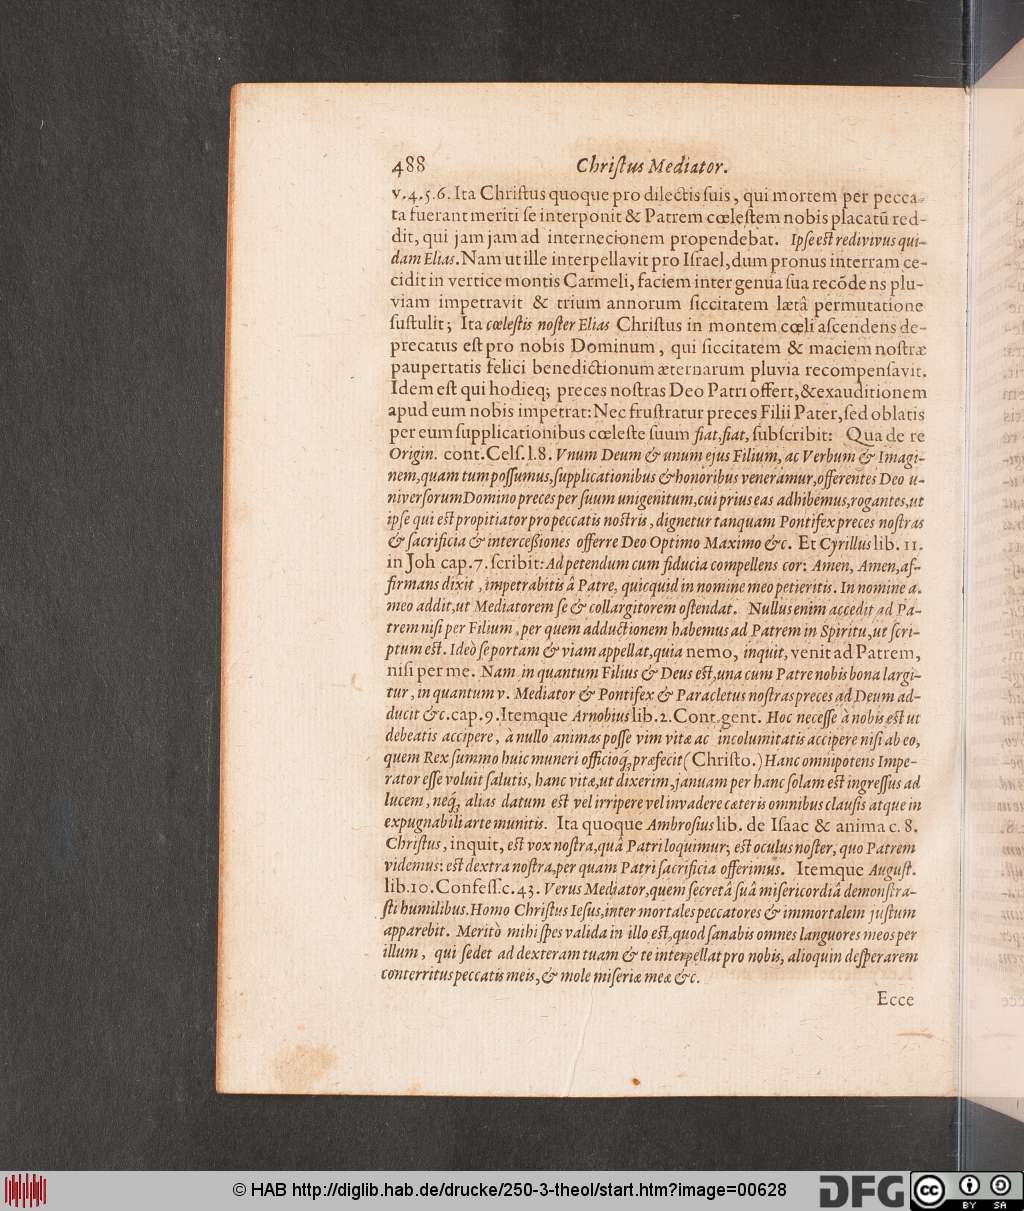 488 Chriſtus Mediator.
v.4.5.6. Ita Chriſtus quoque pro dilectis ſuis, qui mortem per pecca-
ta fuerant meriti ſe interponit & Patrem cœleſtem nobis placatũ red-
dit, qui jam jam ad internecionem propendebat. Ipſe eſt redivivus qui-
dam Elias. Nam ut ille interpellavit pro Iſrael, dum pronus in terram ce-
cidit in vertice montis Carmeli, faciem inter genua ſua recõdens plu-
viam impetravit & trium annorum ſiccitatem lætâ permutatione
ſuſtulit; Ita cœleſtis noſter Elias Chriſtus in montem cœli aſcendens de-
precatus eſt pro nobis Dominum, qui ſiccitatem & maciem noſtræ
paupertatis felici benedictionum æternarum pluvia recompenſavit.
Idem eſt qui hodieq; preces noſtras Deo Patri offert, & exauditionem
apud eum nobis impetrat: Nec fruſtratur preces Filii Pater, ſed oblatis
per eum ſupplicationibus cœleſte ſuum fiat, fiat, ſubſcribit: Qua de re
Origin. cont. Celſ. l.8. Vnum Deum & unum ejus Filium, ac Verbum & Imagi-
nem, quam tum poſſumus, ſupplicationibus & honoribus veneramur, offerentes Deo u-
niverſorum Domino preces per ſuum unigenitum, cui prius eas adhibemus, rogantes, ut
ipſe qui eſt propitiator pro peccatis noſtris, dignetur tanquam Pontifex preces noſtras
& ſacrificia & interceſſiones offerre Deo Optimo Maximo &c. Et Cyrillus lib. 11.
in Joh cap. 7. ſcribit: Ad petendum cum fiducia compellens cor: Amen, Amen, aſ-
firmans dixit, impetrabitis â Patre, quicquid in nomine meo petieritis. In nomine a.
meo addit, ut Mediatorem ſe & collargitorem oſtendat. Nullus enim accedit ad Pa-
trem niſi per Filium, per quem adductionem habemus ad Patrem in Spiritu, ut ſcri-
ptum eſt. Ideò ſe portam & viam appellat, quia nemo, inquit, venit ad Patrem,
niſi per me. Nam in quantum Filius & Deus eſt, una cum Patre nobis bona largi-
tur, in quantum v. Mediator & Pontifex & Paracletus noſtras preces ad Deum ad-
ducit &c. cap. 9. Itemque Arnobius lib. 2. Cont. gent. Hoc neceſſe à nobis eſt ut
debeatis accipere, à nullo animas poſſe vim vitæ ac incolumitatis accipere niſi ab eo,
quem Rex ſummo huic muneri officioq́; præfecit (Chriſto.) Hanc omnipotens Impe-
rator eſſe voluit ſalutis, hanc vitæ, ut dixerim, januam per hanc ſolam eſt ingreſſus ad
lucem, neq́; alias datum eſt vel irripere vel invadere cæteris omnibus clauſis atque in
expugnabili arte munitis. Ita quoque Ambroſius lib. de Iſaac & anima c. 8.
Chriſtus, inquit, eſt vox noſtra, quâ Patri loquimur; eſt oculus noſter, quo Patrem
videmus: eſt dextra noſtra, per quam Patri ſacrificia offerimus. Itemque Auguſt.
lib. 10. Confeſſ. c. 43. Verus Mediator, quem ſecretâ ſuâ miſericordiâ demonſtra-
ſti humilibus. Homo Chriſtus Ieſus, inter mortales peccatores & immortalem juſtum
apparebit. Meritò mihi ſpes valida in illo eſt, quod ſanabis omnes languores meos per
illum, qui ſedet ad dexteram tuam & te interpellat pro nobis, alioquin deſperarem
conterritus peccatis meis, & mole miſeriæ meæ &c.
Ecce
© HAB http://diglib.hab.de/drucke/250-3-theol/start.htm?image=00628
DFG
cc BY SA